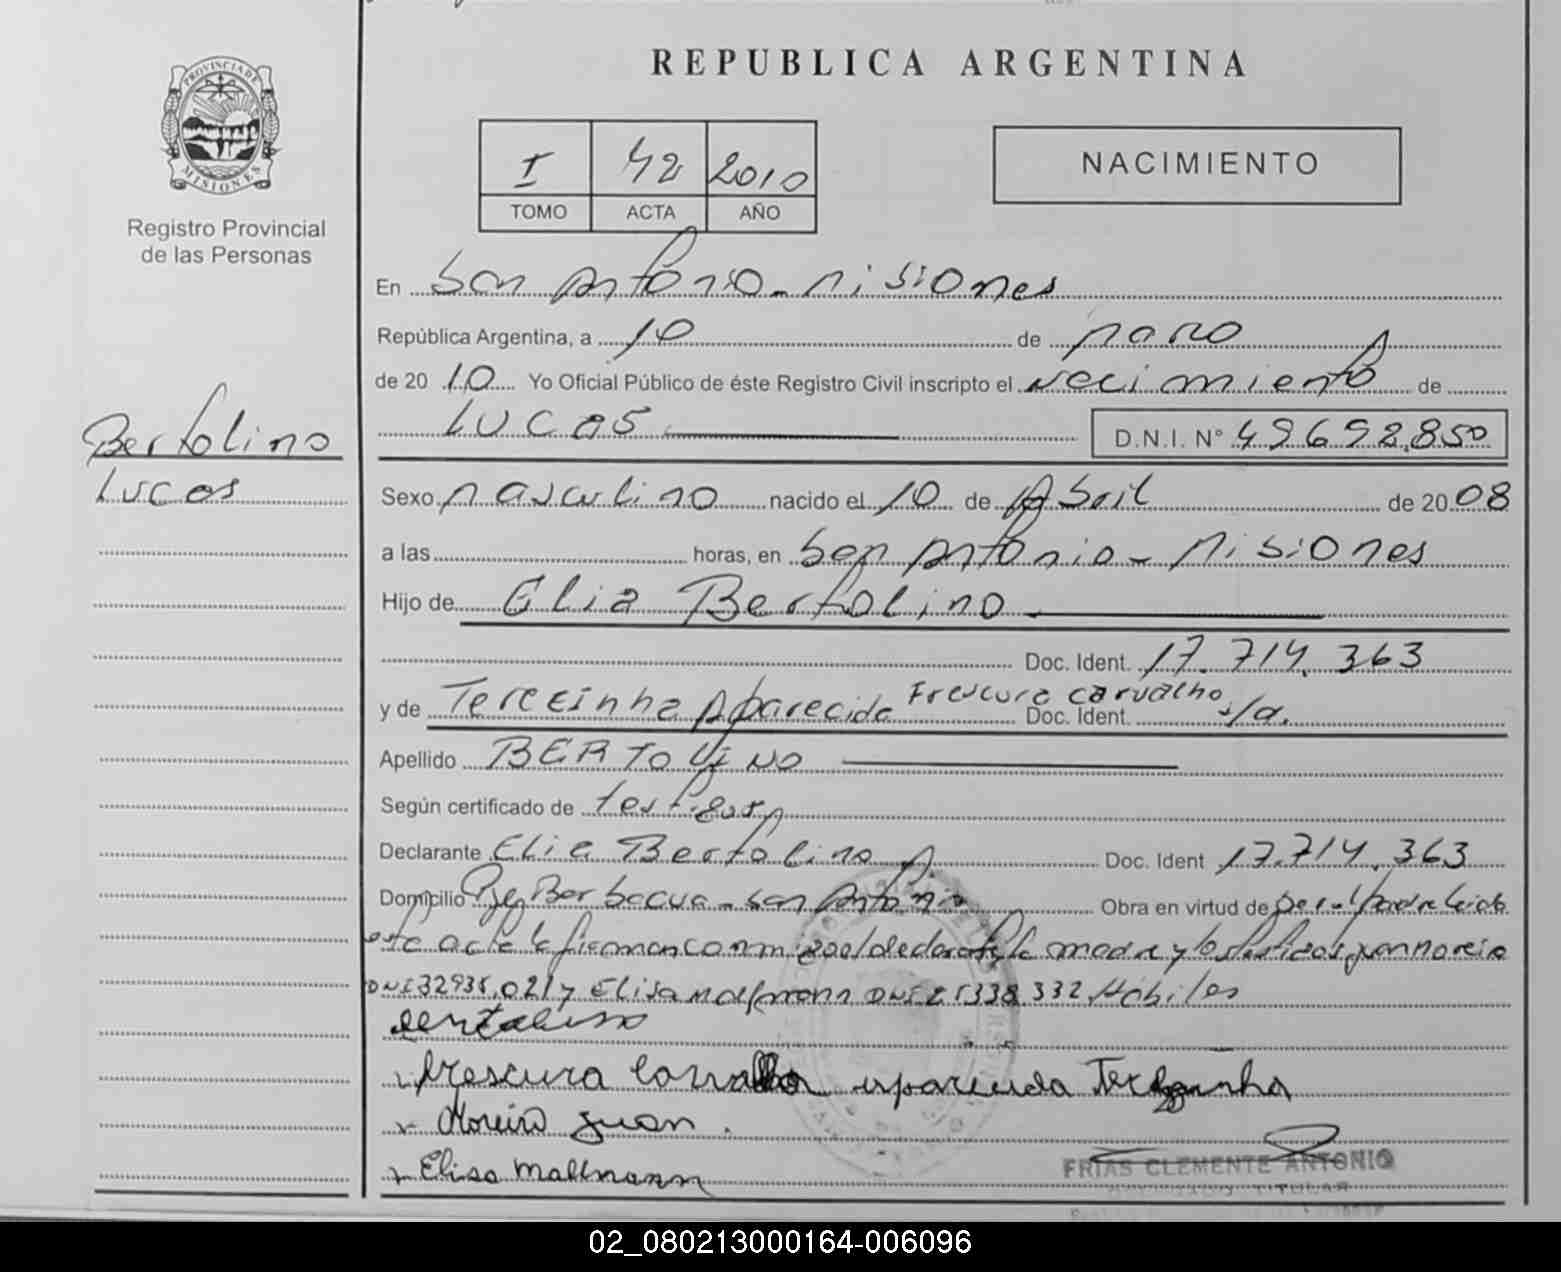 REPUBLICA ARGENTINA
PROVINCIA DE MISIONES
Registro Provincial
de las Personas
I 42 2010
TOMO ACTA AÑO
NACIMIENTO
En San Antonio - Misiones
República Argentina, a 10 de Marzo
de 20 10 Yo Oficial Público de éste Registro Civil inscripto el Nacimiento de
LUCAS D.N.I. Nº 49692.850
Bertolino
Lucas
Sexo Masculino nacido el 10 de Abril de 20 08
a las horas, en San Antonio - Misiones
Hijo de Elia Bertolino
Doc. Ident. 17.714.363
y de Terezinha Aparecida Frescura Carvalho Doc. Ident. s/d.
Apellido BERTOLINO
Según certificado de testigos
Declarante Elia Bertolino Doc. Ident 17.714.363
Domicilio Pje Barbacua - San Antonio Obra en virtud de ser el padre leida
esta acta la firman conmigo el declarante, la madre y los testigos Juan Moreira
DNI 32935.021 y Elisa Malmann DNI 21338.332 Hábiles
Frescura Carvalho Aparecida Terezinha
Moreira Juan.
Elisa Mallmann
FRIAS CLEMENTE ANTONIO
TITULAR
02_080213000164-006096